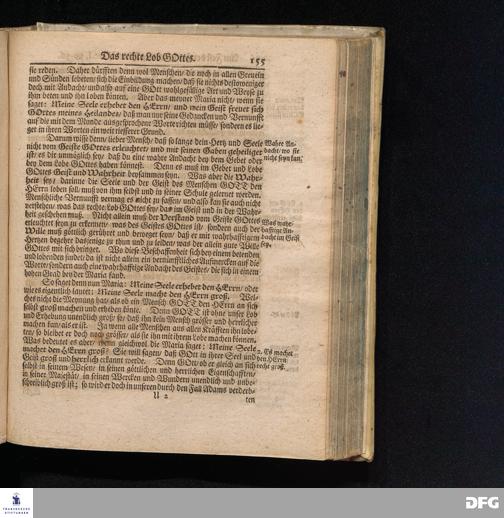 Das rechte Lob GOttes. 155
sie reden. Daher dürfften denn wol Menschen/ die noch in allen Greueln
und Sünden lebeten/ sich die Einbildung machen/ daß sie nichts destoweniger
doch mit Andacht/ und also auf eine GOtt wohlgefällige Art und Weyse zu
ihm beten und ihn loben können. Aber das meynet Maria nicht/ wenn sie
saget: Meine Seele erhebet den HErrn/ und mein Geist freuet sich
GOttes meines Heilandes/ daß man nur seine Gedancken und Vernunfft
auf die mit dem Munde ausgesprochene Worte richten müsse/ sondern es lie-
get in ihren Worten ein weit tiefferer Grund.
Darum wisse denn/ lieber Mensch/ daß so lange dein Hertz und Seele
nicht vom Geiste GOttes erleuchtet/ und mit seinen Gaben geheiliget
ist/ es dir unmöglich sey/ daß du eine wahre Andacht bey dem Gebet oder
bey dem Lobe GOttes haben könnest. Denn es muß im Gebet und Lobe
GOttes Geist und Wahrheit beysammen seyn. Was aber die Wahr-
heit sey/ darinne die Seele und der Geist des Menschen GOTT den
HErrn loben soll/ muß von ihm selbst und in seiner Schule gelernet werden.
Menschliche Vernunfft vermag es nicht zu fassen/ und also kan sie auch nicht
verstehen/ was das rechte Lob GOttes sey/ das im Geist und in der Wahr-
heit geschehen muß. Nicht allein muß der Verstand vom Geiste GOttes
erleuchtet seyn zu erkennen/ was des Geistes GOttes ist/ sondern auch der
Wille muß gäntlich gerühret und beweget seyn/ daß er mit wahrhafftigem
Hertzen begehre dasjenige zu thun und zu leiden/ was der allein gute Wille
GOttes mit sich bringet. Wo diese Beschaffenheit sich bey einem betenden
und lobenden findet/ da ist nicht allein ein vernünfftliches Aufmercken auf die
Worte/ sondern auch eine wahrhafftige Andacht des Geistes/ die sich in einem
hohen Grad bey der Maria fand.
So saget denn nun Maria: Meine Seele erhebet den HErrn/ oder
wie es eigentlich lautet: Meine Seele macht den HErrn groß. Wel-
ches nicht die Meynung hat/ als ob ein Mensch GOTT den HErrn an sich
selbst groß machen und erheben könte. Denn GOTT ist ohne unser Lob
und Erhebung unendlich groß/ so/ daß ihn kein Mensch grösser und herrlicher
machen kan/ als er ist. Ja wenn alle Menschen aus allen Kräfften ihn lobe-
ten/ so bleibet er doch noch grösser/ als sie ihn mit ihrem Lobe machen können.
Was bedeutet es aber/ wenn gleichwol die Maria saget: Meine Seele
machet den HErrn groß? Sie will sagen/ daß GOtt in ihrer Seel und
Geist groß und herrlich erkannt werde. Denn GOtt/ ob er gleich an sich
selbst in seinem Wesen/ in seinen göttlichen und herrlichen Eigenschafften/
in seiner Majestät/ in seinen Wercken und Wundern unendlich und unbe-
schreiblich groß ist; so wird er doch in unseren durch den Fall Adams verderb-
U 2 ten
Wahre An-
dacht/ wo sie
nicht seyn kan.
Was wahr-
hafftige An-
dacht im Geist
sey.
2. Es machet
den HErrn
recht groß.
FRANCKESCHE
STIFTUNGEN
DFG